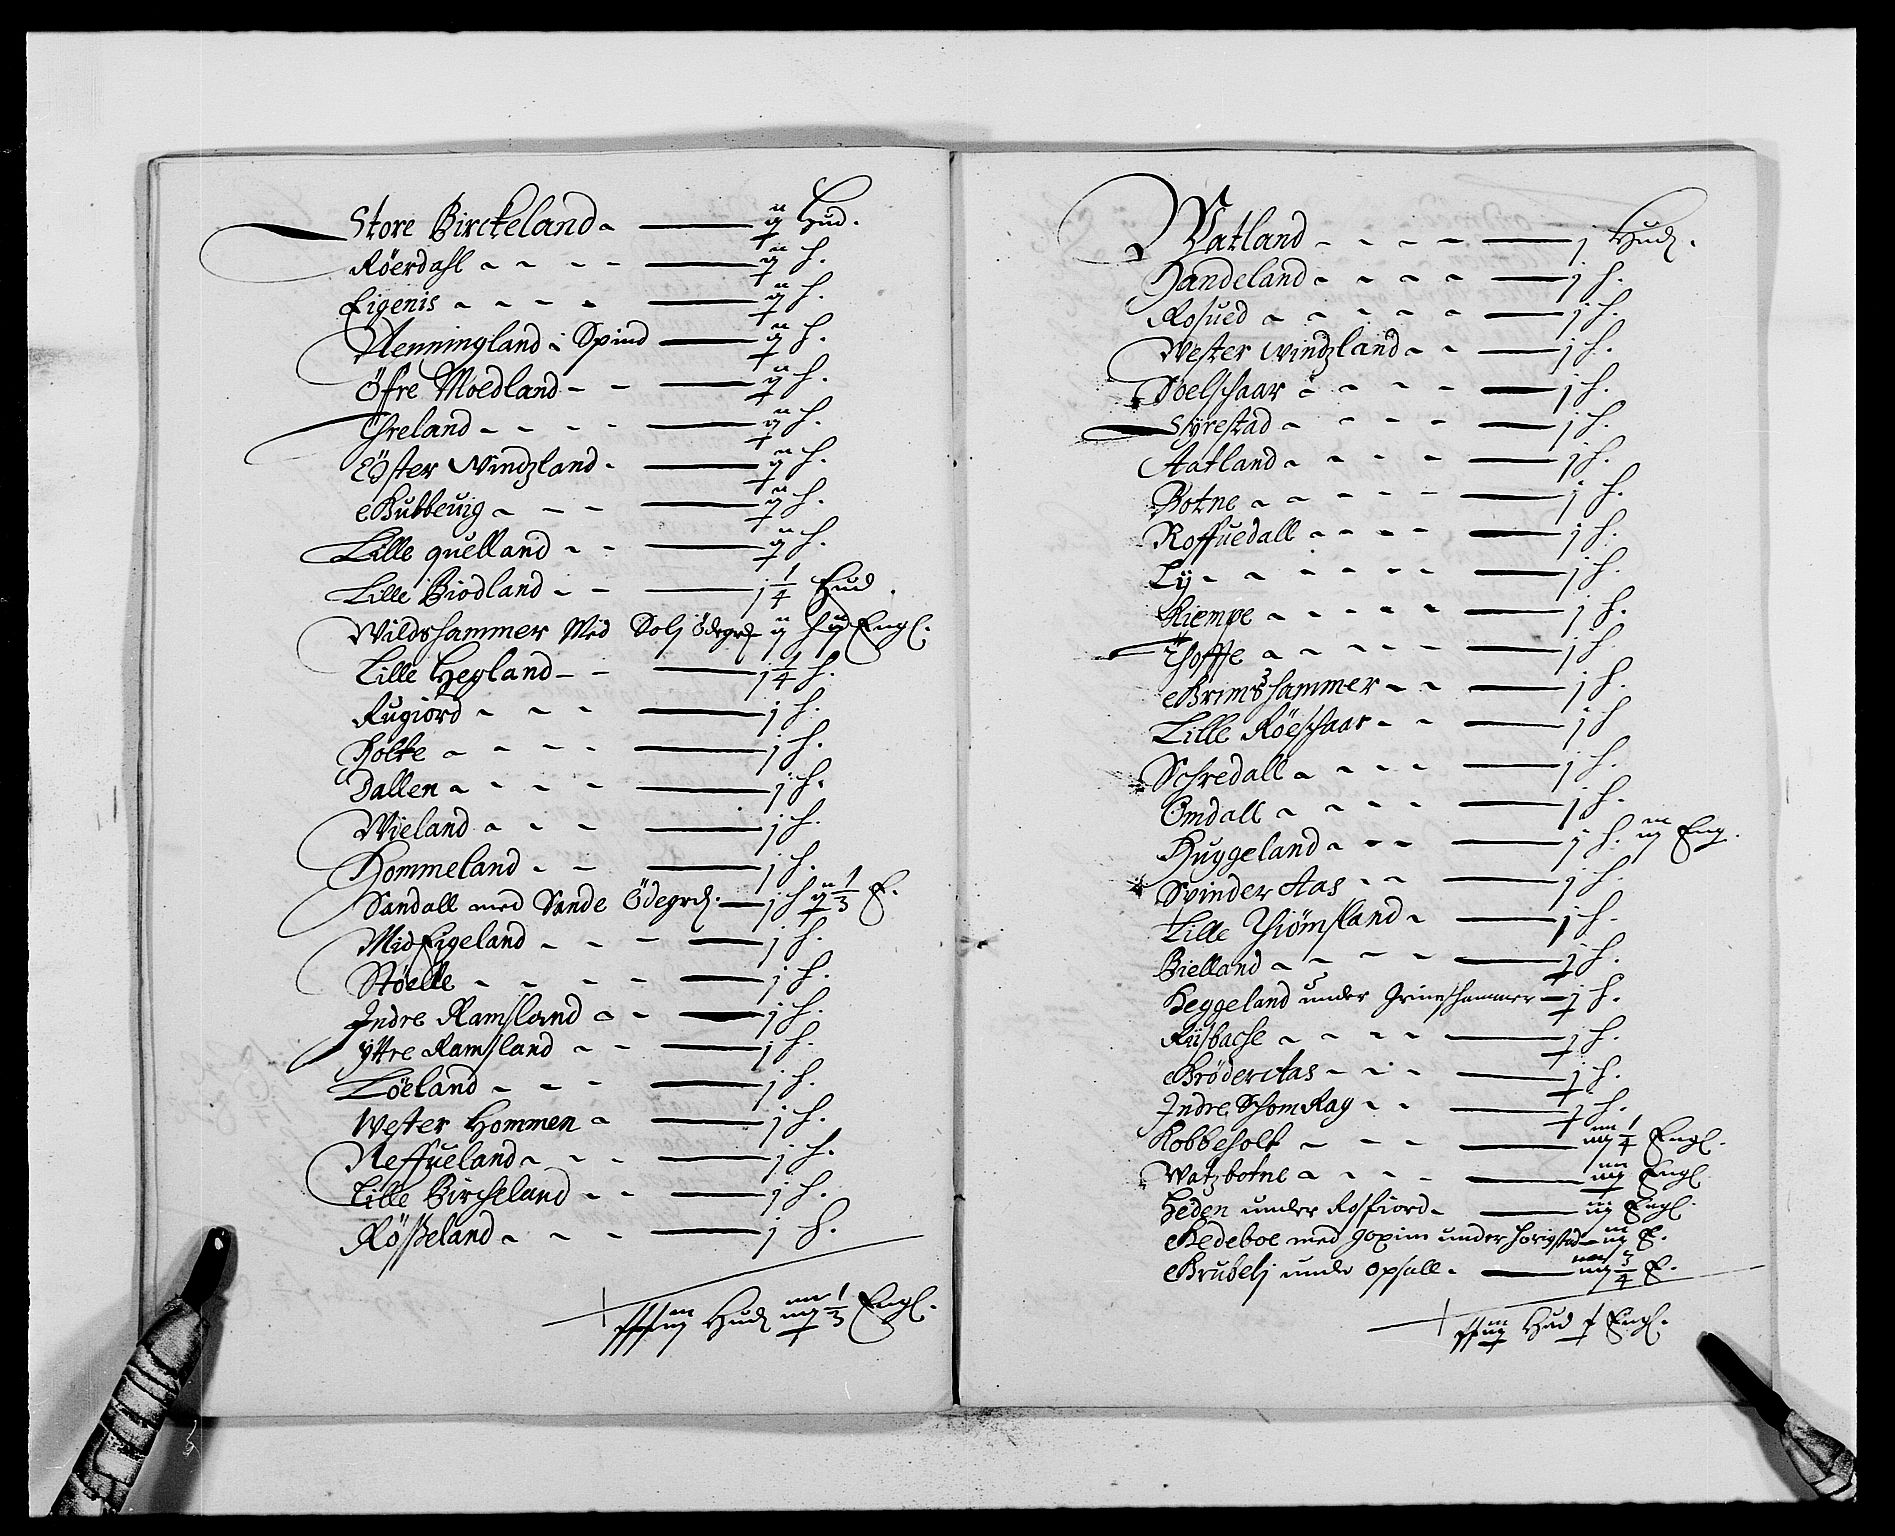 Store Birckeland - Hud.
Röerdahl - h.
Eigenis - h.
Henningland i Spind - h.
Öfre Moedland - h.
Ihreland - h.
Öster Windzland - h.
Gubbeuig - h.
Lille quelland - h.
Lille Biodland - j 1/4 Hud.
Wildshammer Med Solj Ödegrd - h Engl.
Lille Hegland - j 1/4 h.
Rugiord - j h.
Holte - j h.
Dallen - j h.
Wieland - j h.
Hommeland - j h.
Sandall med Sande Ödegrd. - j h 1/3 E.
Mid Eigeland - j h.
Støelle - j h.
Indre Ramsland - j h.
Yttre Ramsland - j h.
Löeland - j h.
Wester Hommen - j h.
Neffueland - j h.
Lille Bircheland - j h.
Rößeland - j h.
Hud 1/3 Engl.
Watland - j Hud.
Handeland - j h.
Rosued - j h.
Wester windzland - j h.
Soelschaar - j h.
Syrestad - j h.
Aatland - j h.
Botne - j h.
Roffuedall - j h.
Lÿ - j h.
Kiempe - j h.
Thoffte - j h.
Grimshammer - j h.
Lille Röeschaar - j h
Schredall - j h.
Omdall - j h.
Huygeland - j h. Eng.
Svinder Aas - j h.
Lille Thiömsland - j h.
Bielland - j h.
Heggeland under Grimshammer - j h.
Rÿsbache - j h.
Bröder Aas - j h.
Indre Schom Rag - j h.
Kobbeholt - 1/4 Engl.
Watzbotne - Engl
Heden under Rosfiord - Engl.
Gedeboe med goxim under - E.
Grubelj under Opsall - 3/4 E.
Hud Engl.